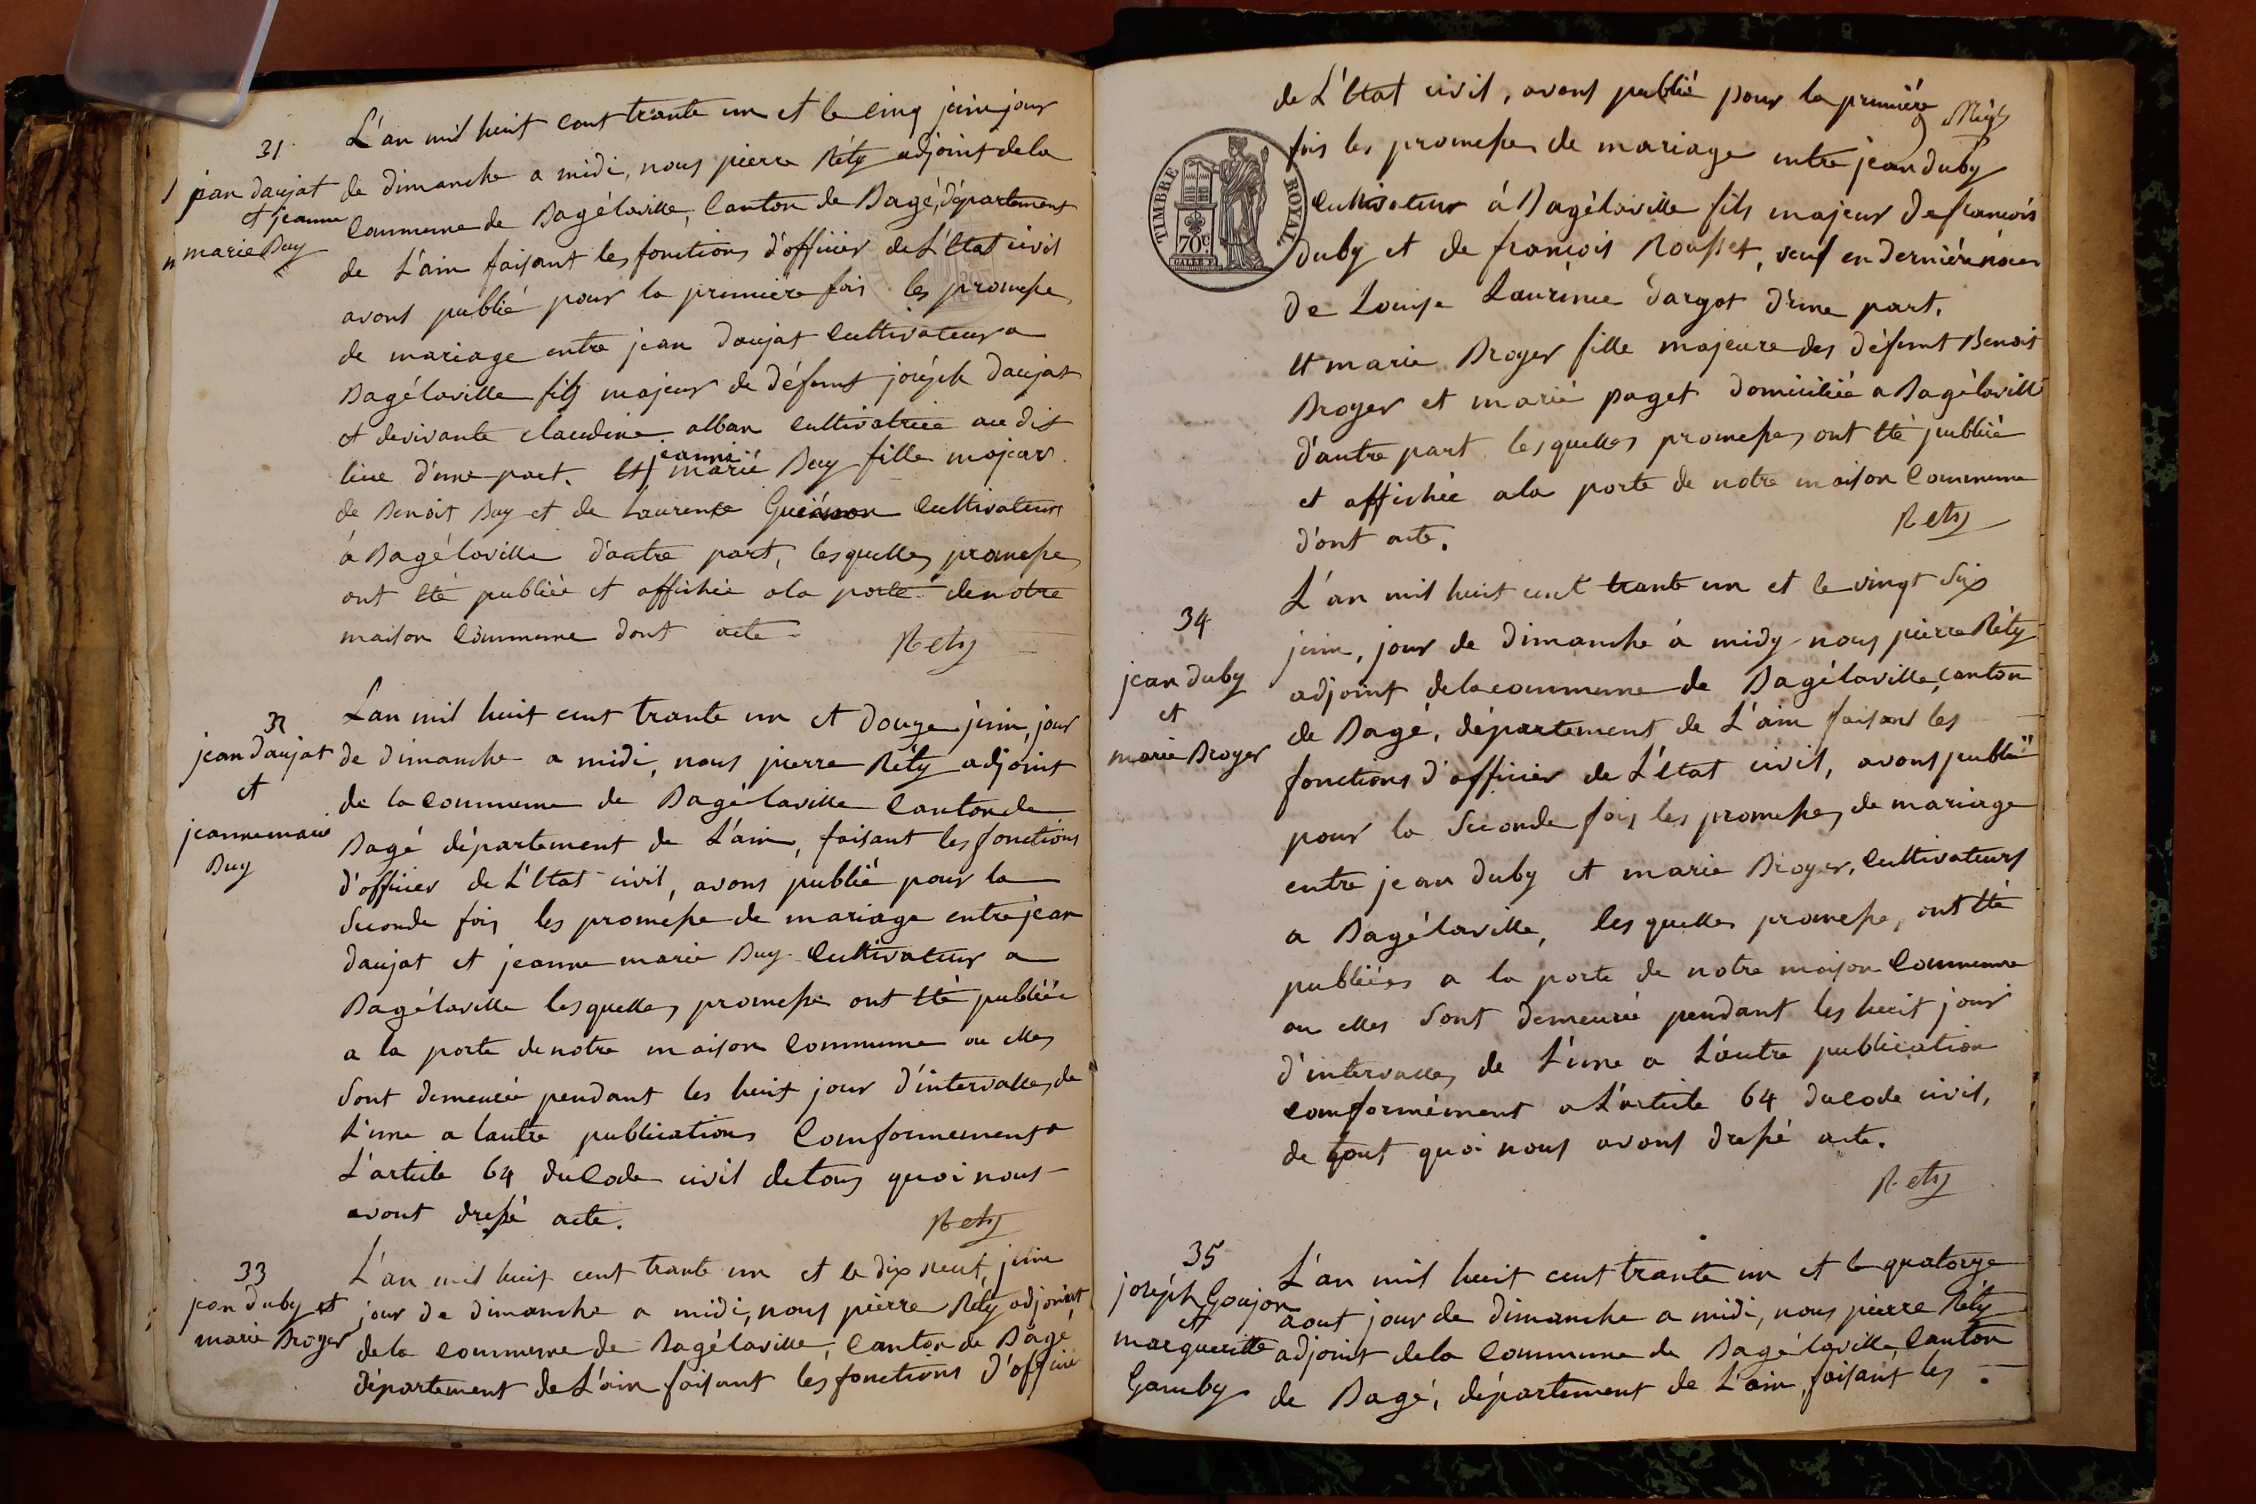 31
jean daujat
et jeanne
marie Buy
L'an mil huit cent trante un et le cinq juin jour
de dimanche a midi, nous pierre Réty adjoint de la
commune de Bagélaville, Canton de Bagé, département
de L'ain faisant les fonctions d'officier de L'Etat civil
avons publié pour la premiere fois les promesse
de mariage entre jean daujat cultivateur a
Bagélaville fils majeur de défunt joséph daujat
et devivante claudine alban cultivatrice au dit
lieu d'une part. Et jeanne marié Buy fille majeur
de Benoit Buy et de Laurence cultivateurs
á Bagélaville d'autre part, lesquelles promesse
ont été publiée et affichée ala porte denotre
maison commune dont acte
Rety
32
jean daujat
et
jeanne marie
Buy
L'an mil huit cent trante un et douze juin, jour
de dimanche a midi, nous pierre Réty adjoint
de la commune de Bagélaville Canton de
Bagé département de L'ain, faisant les fonctions
d'officier de L'Etat civil, avons publié pour la
seconde fois les promésse de mariage entre jean
daujat et jeanne marie Buy cultivateur a
Bagélaville lesquelles promesse ont été publiée
a la porte denotre maison commune ou elles
sont demeurée pendant les huit jour d'intervalles de
L'une a lautre publications Comformement a
L'article 64 du Code civil detous quoi nous
avont dressé acte.
Rety
33
jean duby et
marie Broyer
L'an mil huit cent trante un et le dix neuf juin
jour de dimanche a midi, nous pierre Réty adjoint
dela commune de Bagélaville, Canton de Bagé
département de L'ain faisant les fonctions d'officier
de L'Etat civil, avons publié pour la premiére
fois les promesses de mariage entre jean duby
TIMBRE ROYAL
70c
cultivateur á Bagélaville fils majeur de francois
duby et de françois Rousset, veuf en derniére noces
de Louise Laurence dargot d'une part.
Et marie Broyer fille majeure des défunt Benoit
Broyer et marié paget domiciliée a Bagélaville
d'autre part lesquelles promesses ont été publiée
et affichée ala porte de notre maison Commune
d'ont acte.
Rety
34
jean duby
et
marie Broyer
L'an mil huit cent trante un et le vingt six
juin, jour de dimanche á midy nous pierre Réty
adjoint dela commune de Bagélaville, canton
de Bagé, département de L'ain faisant les
fonctions d'officier de L'état civil, avons publié
pour la seconde fois les promesses de mariage
entre jean duby et marie Broyer, cultivateurs
a Bagélaville, lesquelles promesse, ont été
publiées a la porte de notre maison Commune
ou elles sont demeurée pendant les huit jour
d'intervalles de L'une a L'autre publication
comformément a L'article 64 du Code civil,
de tout quoi nous avons dressé acte.
Rety
35
joséph Goujon
et
margueritte
Gamby
L'an mil huit cent trante un et le quatorze
aout jour de dimanche a midi, nous pierre Réty
adjoint dela Commune de Bagélaville, Canton
de Bagé, département de L'ain, faisant les